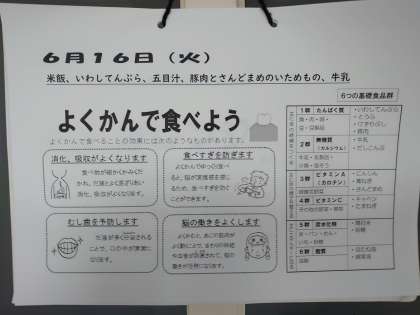 6月16日（火）
米飯、いわしてんぷら、五目汁、豚肉とさんどまめのいためもの、牛乳
よくかんで食べよう
よくかんで食べることの効果には次のようなものがあります。
消化、吸収がよくなります
食べ物が細かくかみくだ
かれ、だ液とよくまざりあい
消化、吸収がよくなります。
食べすぎを防ぎます
よくかんでゆっくり食べ
ると、脳が満腹感を感じ
るため、食べすぎを防ぐ
ことができます。
むし歯を予防します
だ液が多く分泌される
ことで、口の中が清潔に
なります。
脳の働きをよくします
よくかむと、あごの筋肉が
よく動くことで、
働きが活発になります。
6つの基礎食品群
1群 たんぱく質
魚・肉・卵・
豆・豆製品
・いわしてんぷら
・とうふ
・豚肉
2群 無機質
（カルシウム）
牛乳・乳製品・
・牛乳
・だしこんぶ
3群 ビタミンA
（カロテン）
・にんじん
・青ねぎ
・さんどまめ
4群 ビタミンC
・キャベツ
・たまねぎ
5群 炭水化物
米・パン・めん・
いも・砂糖
・精白米
・砂糖
6群 脂質
油脂